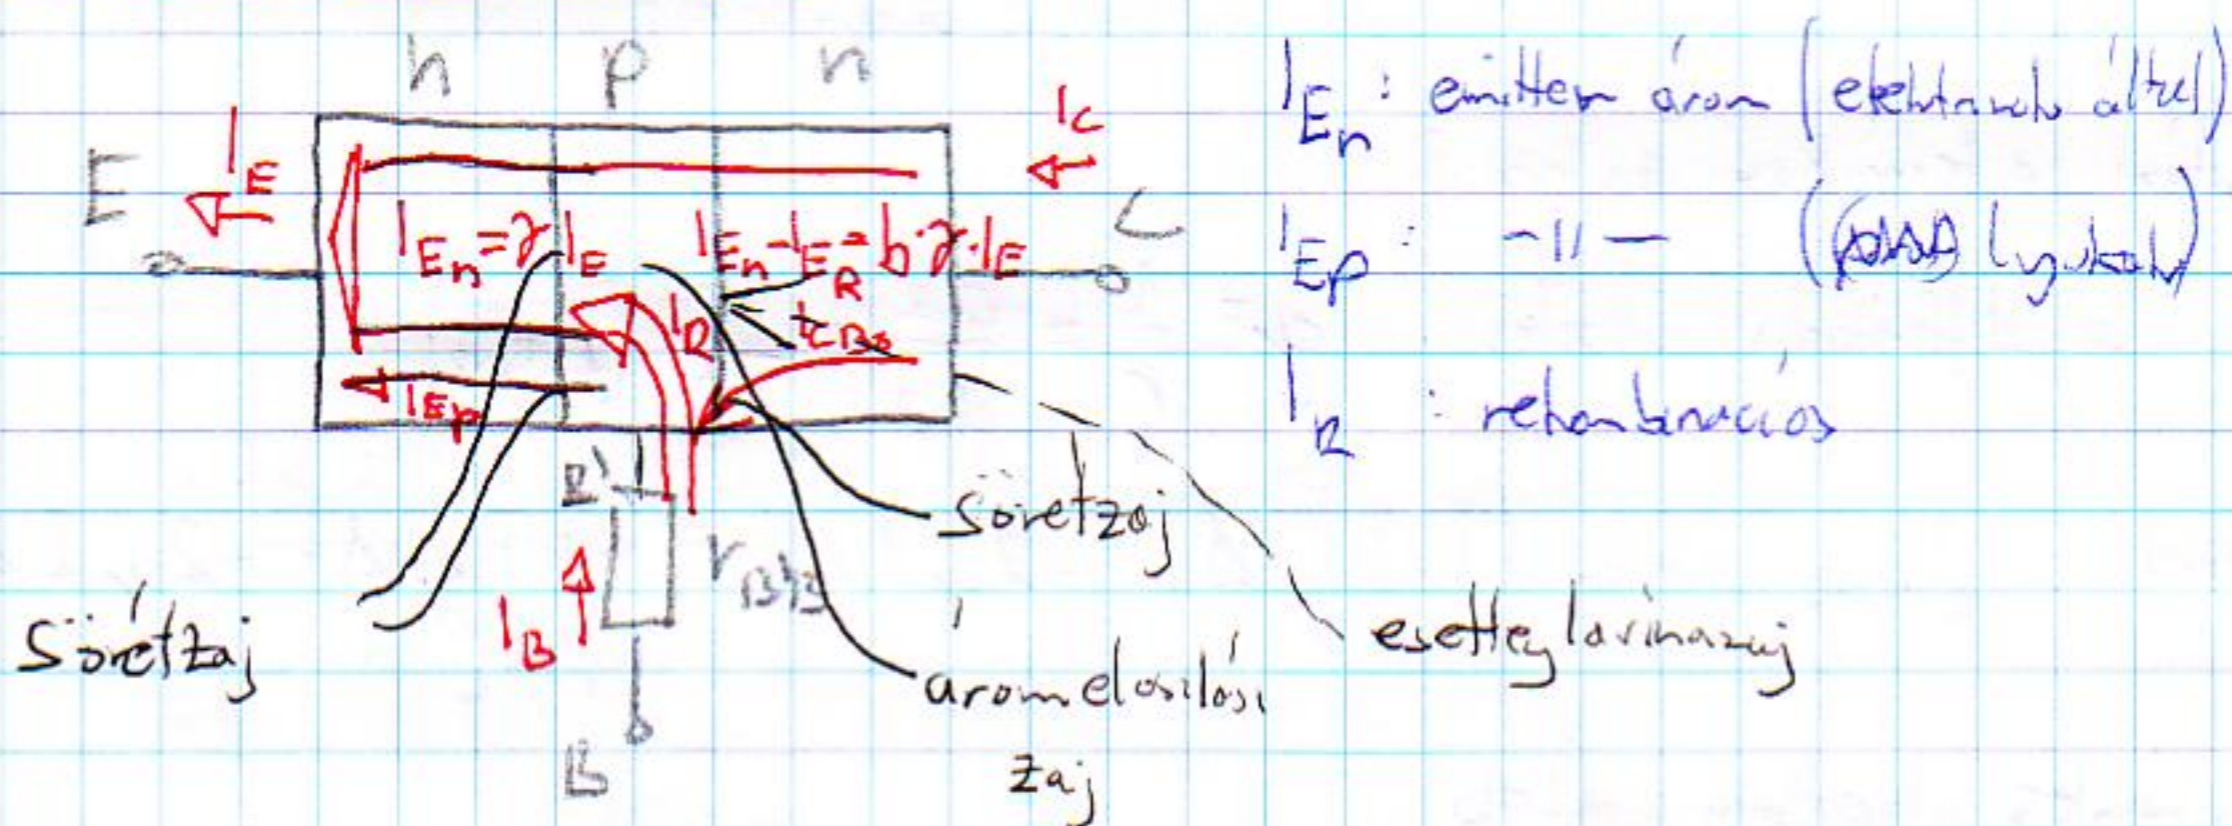 n p n
I_C
E
I_E
C
I_En = γ I_E
I_En - I_R = b·γ·I_E
I_R
I_CB0
I_Ep
B'
r_BB'
I_B
B
Sörétzaj
Sörétzaj
áromeloszlósi
zaj
esetleg lavinazaj
I_En : emitter árom (elektronok által)
I_Ep : -II- (lyukak)
I_R : rekombinációs